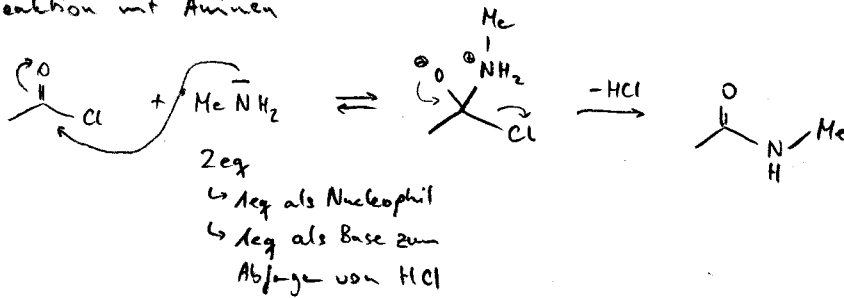 eaktion mit Aminen
O
Cl
+ MeNH2
⊖
O
Me
⊕
NH2
Cl
-HCl
O
N
H
Me
2eq
↳ 1eq als Nucleophil
↳ 1eq als Base zum
Abfangen von HCl